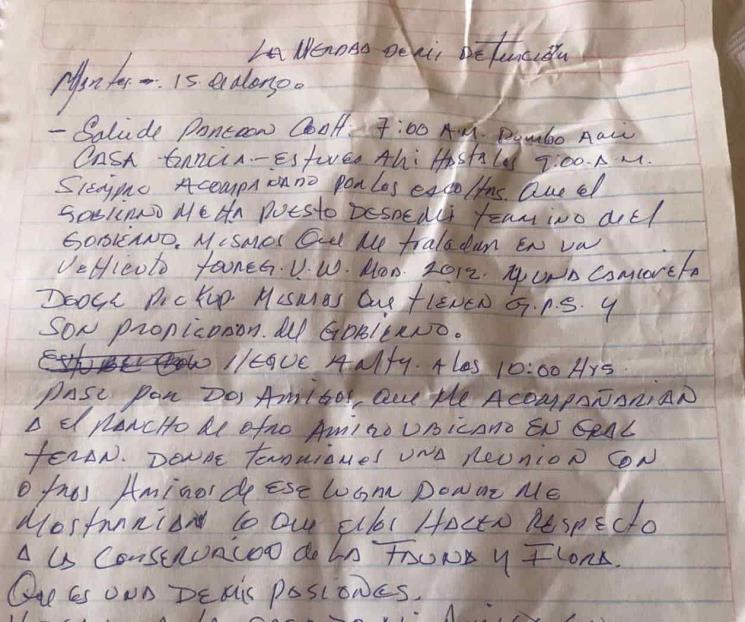 LA VERDAD DE MI DETENCIÓN
Martes -. 15 de Marzo.
- Sali de PARREDON COAH. 7:00 A.M. Rumbo A mi
CASA GARCIA - ESTUVE AHI HASTA las 9:00 A.M.
SIEMPRE ACOMPAÑADO por los escoltas. Que el
GOBIERNO ME HA PUESTO DESDE MI TERMINO del
GOBIERNO. MISMOS QUE ME trasladan EN UN
VEHICULO toureg. V.W. MOD. 2012. Y UNA CAMIONETA
DODGE PICKUP. MISMOS QUE TIENEN G.P.S. Y
SON PROPIEDAD. del GOBIERNO.
llEGUE A Mty. A las 10:00 Hrs.
PASE POR DOS AMIGOS, que ME ACOMPAÑARIAN
A el RANCHO de otro AMIGO UBICADO EN GRAL
TERAN. DONDE TENDRIAMOS UNA REUNION CON
OTROS AMIGOS de ESE LUGAR DONDE ME
MOSTRARIAN lo QUE ellos HACEN RESPECTO
A LA CONSERVACIÓ de LA FAUNA Y FLORA.
Que ES UNA DE MIS PASIONES.